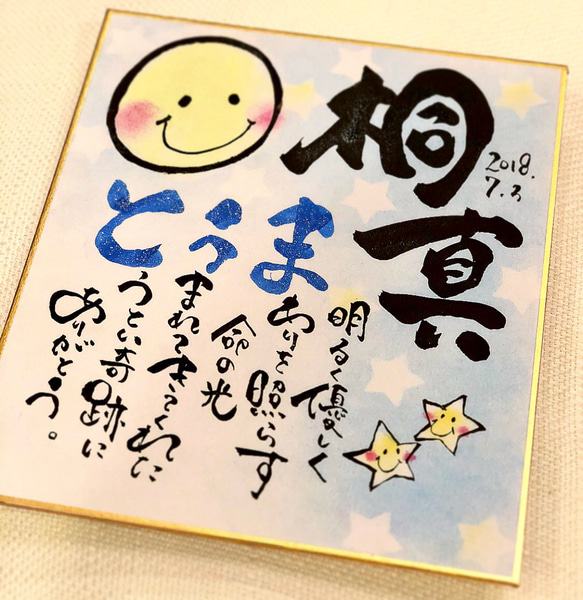 桐真
2018.
7.3
明るく優しく
まわりを照らす
命の光
うまれてきてくれた
とうとい奇跡に
ありがとう。